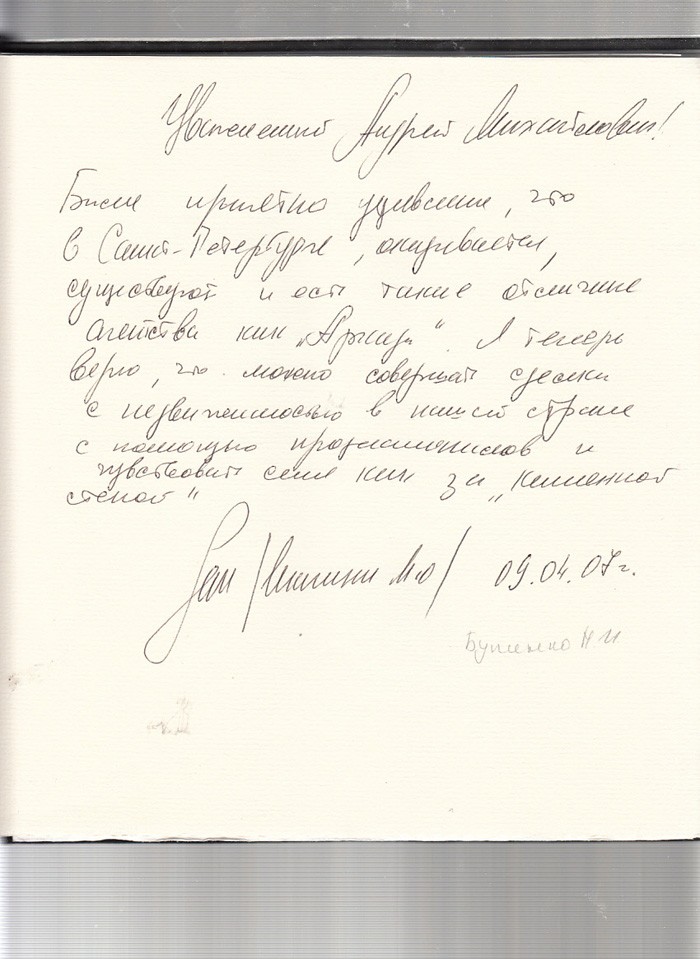 Уважаемый Андрей Михайлович!
Были приятно удивлены, что
в Санкт-Петербурге, оказывается,
существуют и есть такие отличные
агентства как „Аркада". Я теперь
верю, что можно совершать сделки
с недвижимостью в нашей стране
с помощью профессионалов и
чувствовать себя как за „каменной
стеной"
М.Ю 09.04.07г.
Бутенко Н И